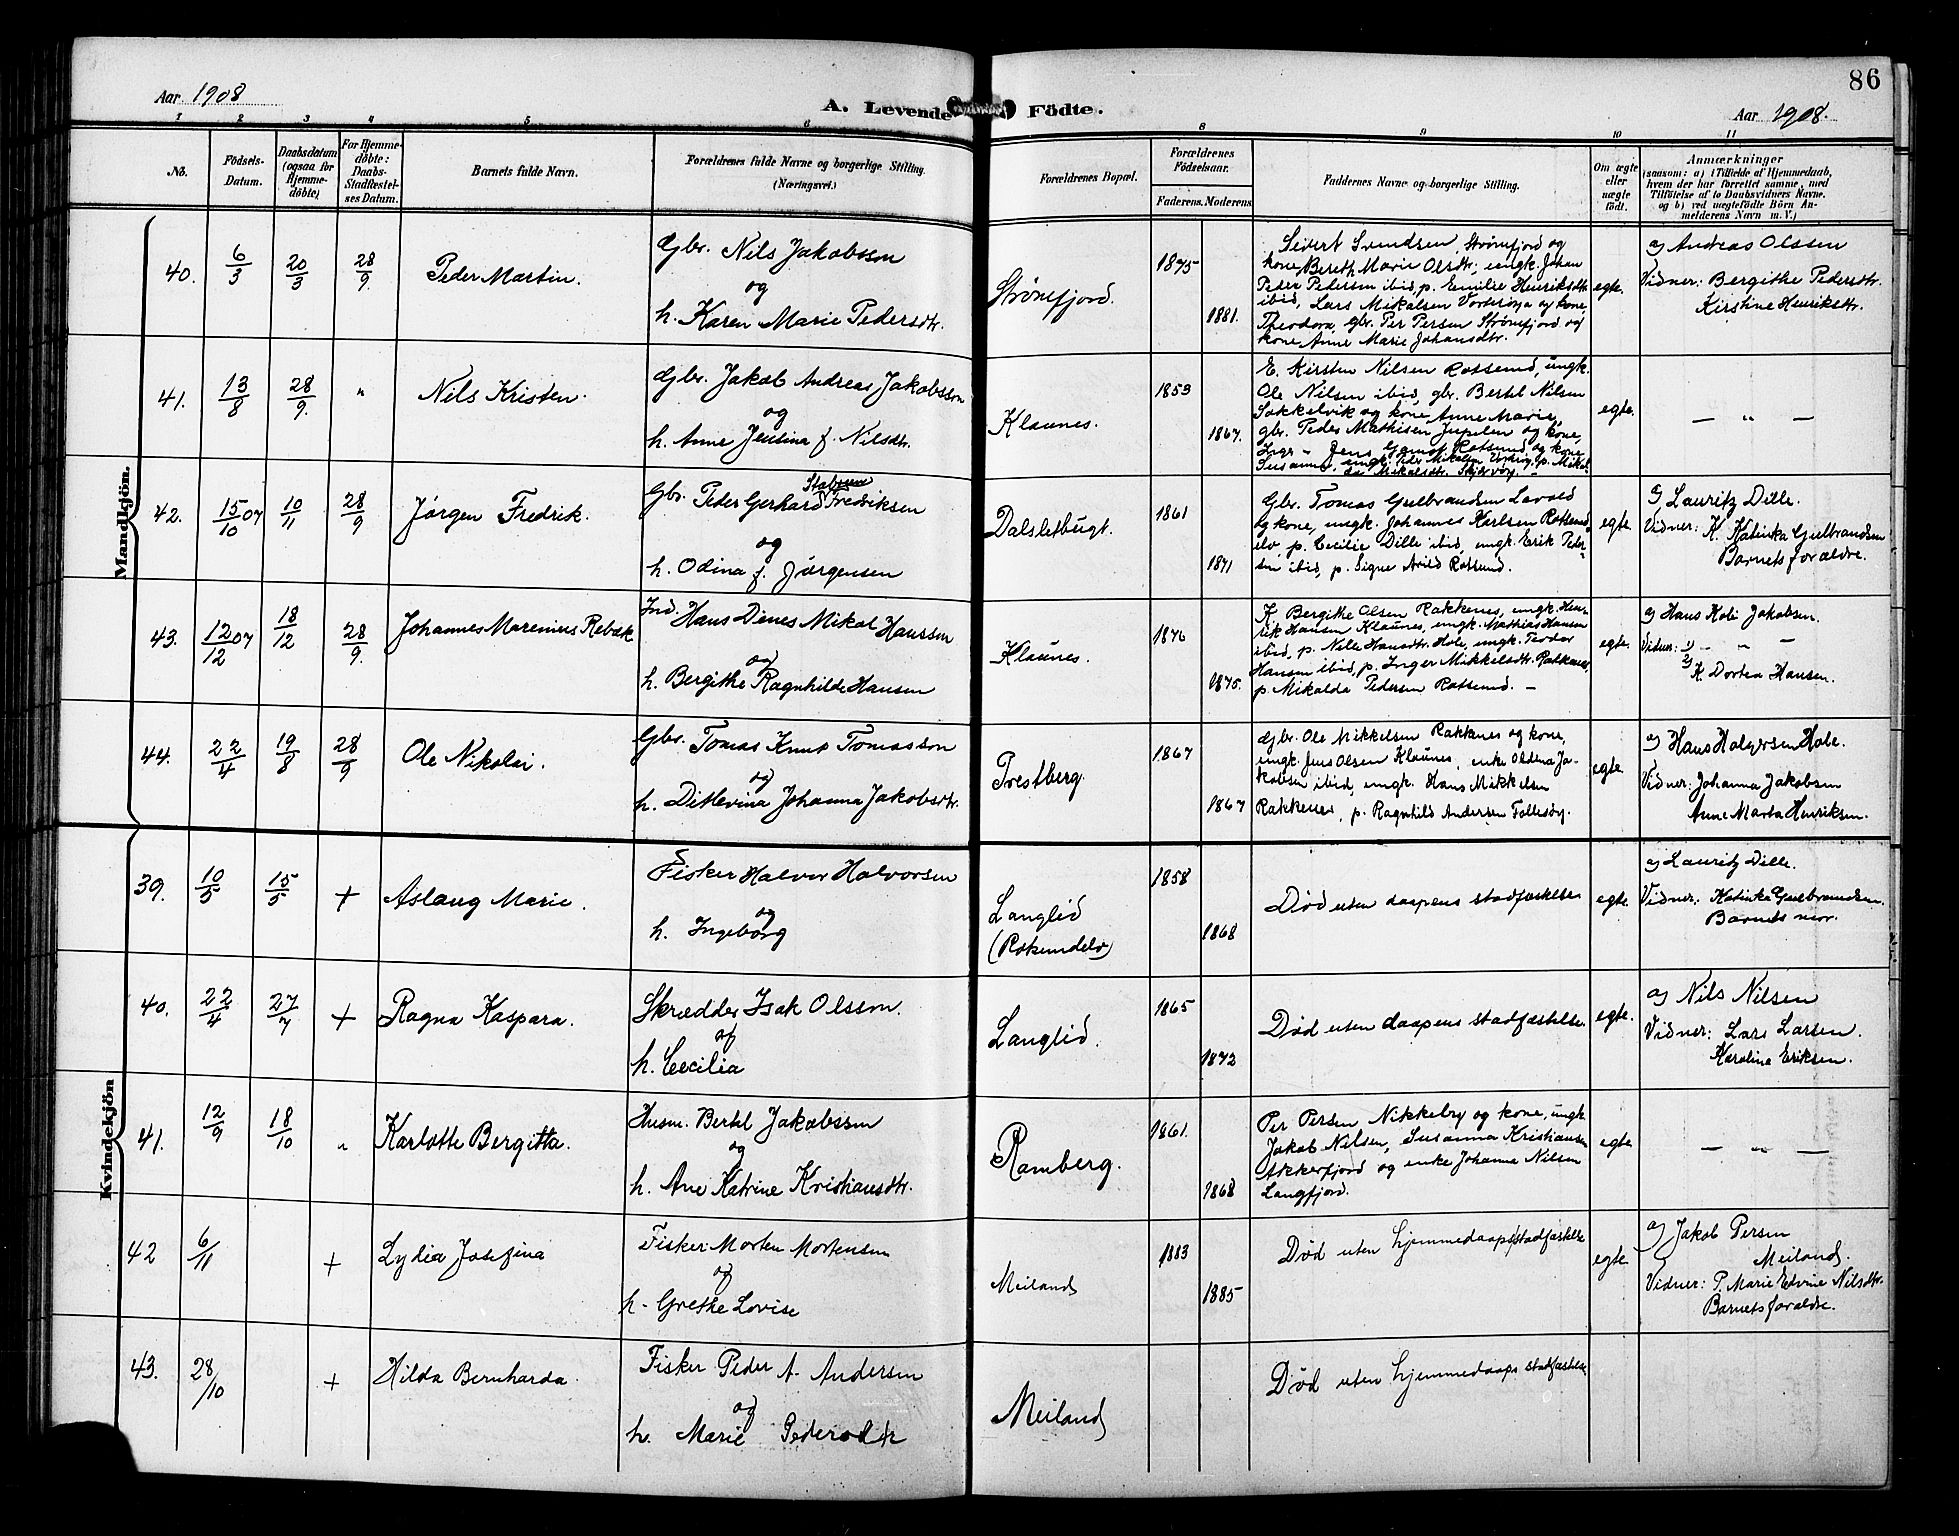 86
Aar 1908
A. Levende Födte.
Aar 1908.
1 2 3 4 5 6 8 9 10 11
No.
Födsels-Datum.
Daabsdatum (ogsaa for Hjemmedöbte)
For Hjemmedöbte: Daabs-Stadfæstelses Datum.
Barnets fulde Navn.
Forældrenes fulde Navne og borgerlige Stilling.
(Næringsvei.)
Forældrenes Bopæl.
Forældrenes Födselsaar.
Faderens. Moderens
Faddernes Navne og borgerlige Stilling.
Om ægte eller uægte födt.
Anmærkninger
(saasom: a) i Tilfælde af Hjemmedaab,
hvem der har forrettet samme, med
Tilföielse af to Daabsvidners Navne.
og b) ved uægtefödte Börn An-
melderens Navn m. V.)
Mandkjön.
40. 6/3 20/3 28/9 Peder Martin.
Gbr. Nils Jakobsson
og
h. Karen Marie Pedersdtr.
Strømfjord.
1875
1881.
Sivert Svendsen Strømfjord og
kone Bereth Marie Olsdtr, ungk. Johan
Peder Pedersen ibid, p. Emilie Henriksdtr
ibid, Lars Mikalsen Vorterøya og kone,
Theodora, gbr. Per Persen Strømfjord og
kone Anne Marie Johansdtr.
egte.
a) Andreas Olssen
Vidner: Bergithe Pedersdtr.
Kirstine Henriksdtr.
41. 13/8 28/9. " Nils Kristen.
Gbr. Jakob Andreas Jakobsson
og
h. Anne Jensina f. Nilsdtr.
Klaunes.
1853
1867.
E. Kirsten Nilsen Rotsund, ungk.
Ole Nilsen ibid, gbr. Bertel Nilsen
Sokkelvik og kone Anne Marie,
gbr. Peder Mathisen Jupelen og kone,
Inger - Jens Rotsund og kone
Susanna, ungk. Peder Mikalsen p. Mikal-
da Mikalsdtr. Skjervøy.
egte.
— " —
42. 15/10 07 10/11 28/9 Jørgen Fredrik.
Stabsun
Gbr. Peder Gerhard Fredriksen
og
h. Odina f. Jørgensen
Dalsletbugt.
1861
1871
Gbr. Tomas Gulbrandsen Lovold
og kone, ungk. Johannes Karlsen Rotsund
elv, p. Cecilie Dille ibid, ungk. Erik Peder
sen ibid, p. Signe Arild Rotsund.
egte.
a) Lauritz Dille.
Vidner: K. Katinka Gulbrandsen
Barnets forældre.
43. 12/12 07 18/12 28/9. Johannes Marenius Rebæk
Ind. Hans Dines Mikal Hanssen
og
h. Bergithe Ragnhilde Hansen
Klaunes.
1876
1875.
K Bergithe Olsen Rakkenes, ungk. Hen-
rik Hansen Klaunes, ungk. Mathias Hansen
ibid, p. Nille Hansdtr. Hole, ungk. Teodor
Hansen ibid, p. Inger Mikkelsdtr. Rakkenes,
p. Mikalda Pedersen Rotsund. —
egte.
a) Hans Kobi Jakobsen.
Vidner: 1) - " -
2) K. Dortea Hansen.
44. 22/4 19/8 28/9 Ole Nikolai.
Gbr. Tomas Knut Tomasson
og
h. Ditlevina Johanna Jakobsdtr.
Prestberg.
1867
1867
Gbr. Ole Mikkelsen Rakkenes og kone,
ungk. Jens Olsen Klaunes, enke Oldena Ja-
kobsen ibid, ungk. Hans Mikkelsen
Rakkenes, p. Ragnhild Andersen Follesøy.
egte
a) Hans Holgersen Hole.
Vidner: Johanna Jakobsen
Anne Marta Henriksen.
Kvindekjön
39. 10/5 15/5 + Aslaug Marie.
Fisker Halvor Halvorsen
og
h. Ingeborg
Langlid
(Roksundelv)
1858
1868
Død uten daapens stadfæstelse
egte.
a) Lauritz Dille.
Vidner: Katinka Gulbrandsen.
Barnets mor.
40. 22/4 27/7 + Ragna Kaspara.
Skrædder Isak Olsson.
og
h. Cecilia
Langlid.
1865
1872
Død uten daapens stadfæstelse.
egte.
a) Nils Nilsen
Vidner: Lars Larsen.
Karoline Eriksen.
41. 12/9 18/10 " Karlotte Bergitta.
Husm. Bertel Jakobssen
og
h. Ane Katrine Kristiansdtr.
Ramberg.
1861.
1868
Per Persen Nikkeby og kone, ungk.
Jakob Nilsen, Susanna Kristiansen
Akkerfjord og enke Johanna Nilsen
Langfjord.
egte.
— " —
42 6/11 + Lydia Josefina
Fisker Morten Mortensen
og
h. Grethe Lovise
Meiland
1883
1885
Død uten hjemmedaaps stadfæstelse
egte
a) Jakob Persen
Meiland.
Vidner: P. Marie Edvine Nilsdtr.
Barnets forældre.
43. 28/10 + Hilda Bernharda.
Fisker Peder A. Andersen
og
h. Marie Pedersdtr
Meiland
Død uten hjemmedaaps stadfæstelse